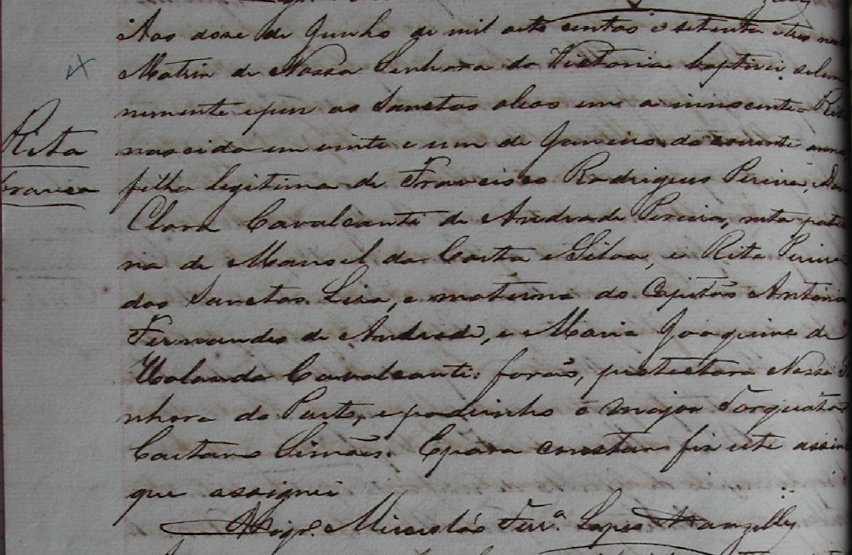 Aos dose de Junho de mil oito centos e setenta e tres na
Matriz de Nossa Senhora da Victoria baptisei solem
nemente e puz os Sanctos oleos em a innocente Rita
Rita
nascida em vinte e um de Janeiro do corrente anno
branca
filha legitima de Francisco Rodrigues Pereira, e
Clara Cavalcanti de Andrade Pereira, neta pater
na de Manoel da Costa e Silva, e Rita Pereira
dos Sanctos Lira, e materna do Capitão Antonio
Fernandes de Andrade, e Maria Joaquina de
Hollanda Cavalcanti: forão, protectora Nossa Se
nhora do Parto, e padrinho o major Torquato
Caetano Simões. E para constar fiz este assento
que assignei
Miceslão Ferrª. Lopes Wanzelly